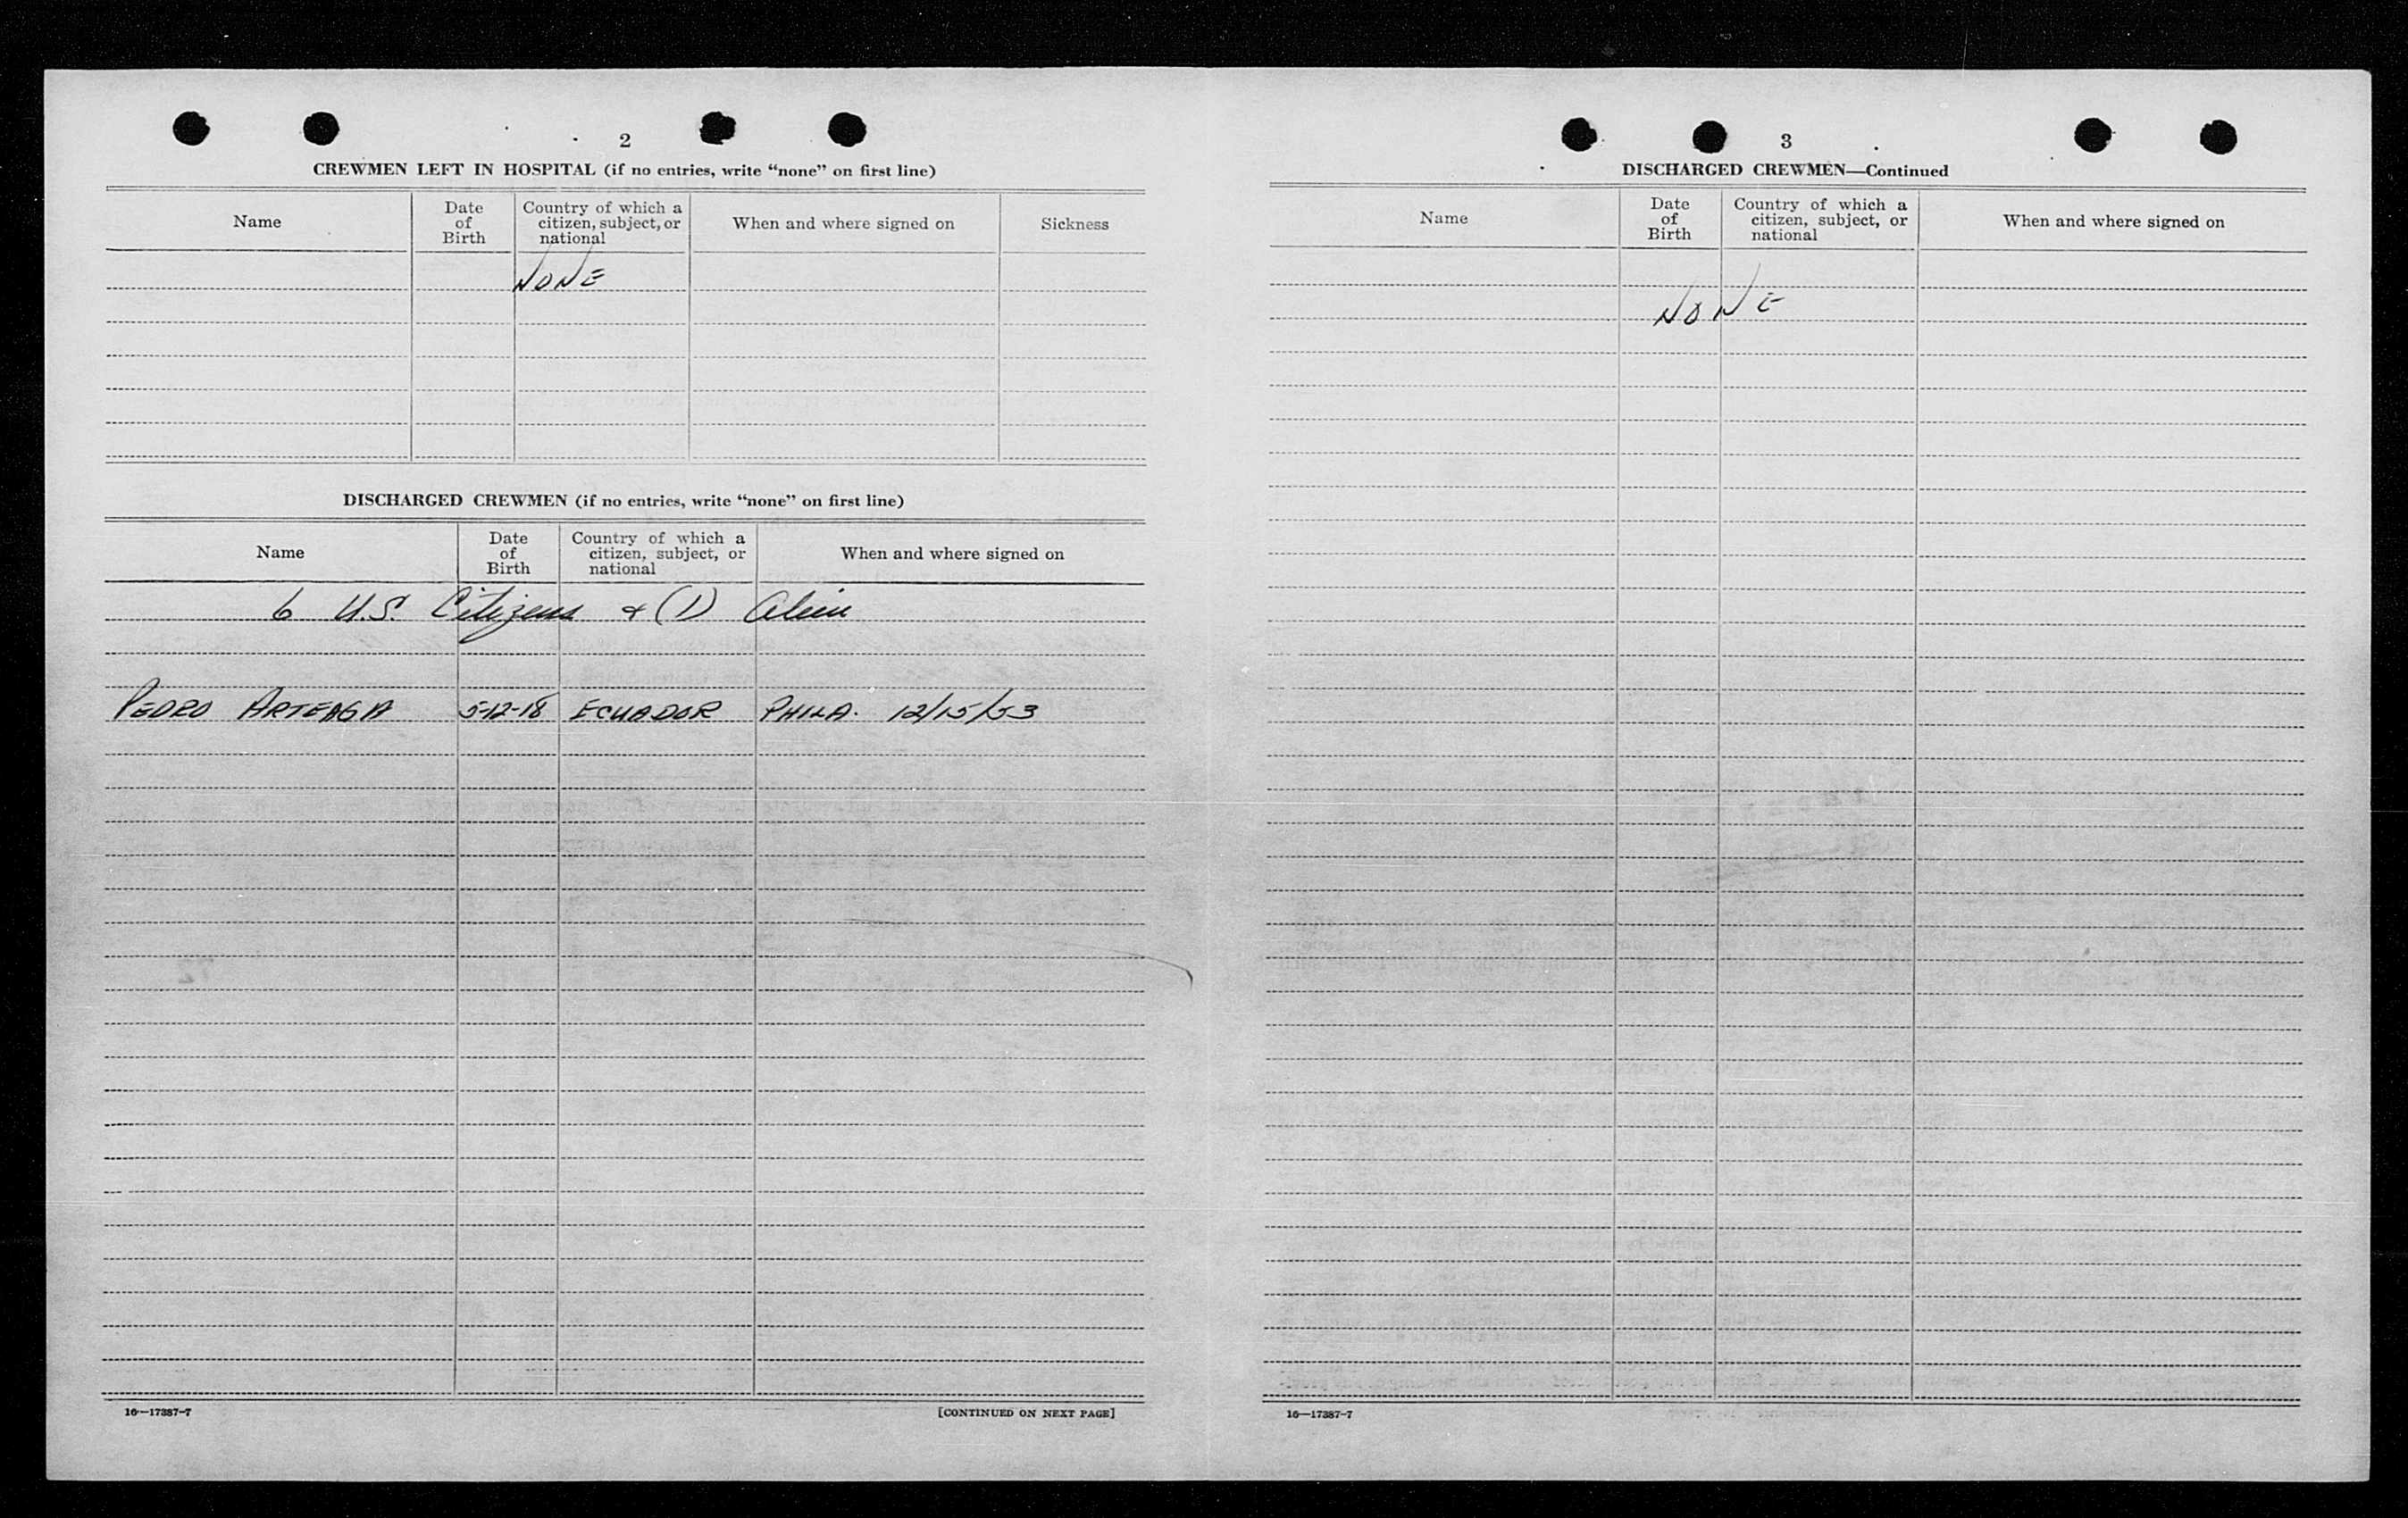 2
CREWMEN LEFT IN HOSPITAL (if no entries, write "none" on first line)
Name
Date of Birth
Country of which a citizen, subject, or national
When and where signed on
Sickness
NONE
DISCHARGED CREWMEN (if no entries, write "none" on first line)
Name
Date of Birth
Country of which a citizen, subject, or national
When and where signed on
6 U.S. Citizens & (1) Alein
PEDRO ARTEAGA 5-12-18 ECUADOR PHILA. 12/15/53
16—17387-7
[CONTINUED ON NEXT PAGE]
3
DISCHARGED CREWMEN—Continued
Name
Date of Birth
Country of which a citizen, subject, or national
When and where signed on
NONE
16—17387-7